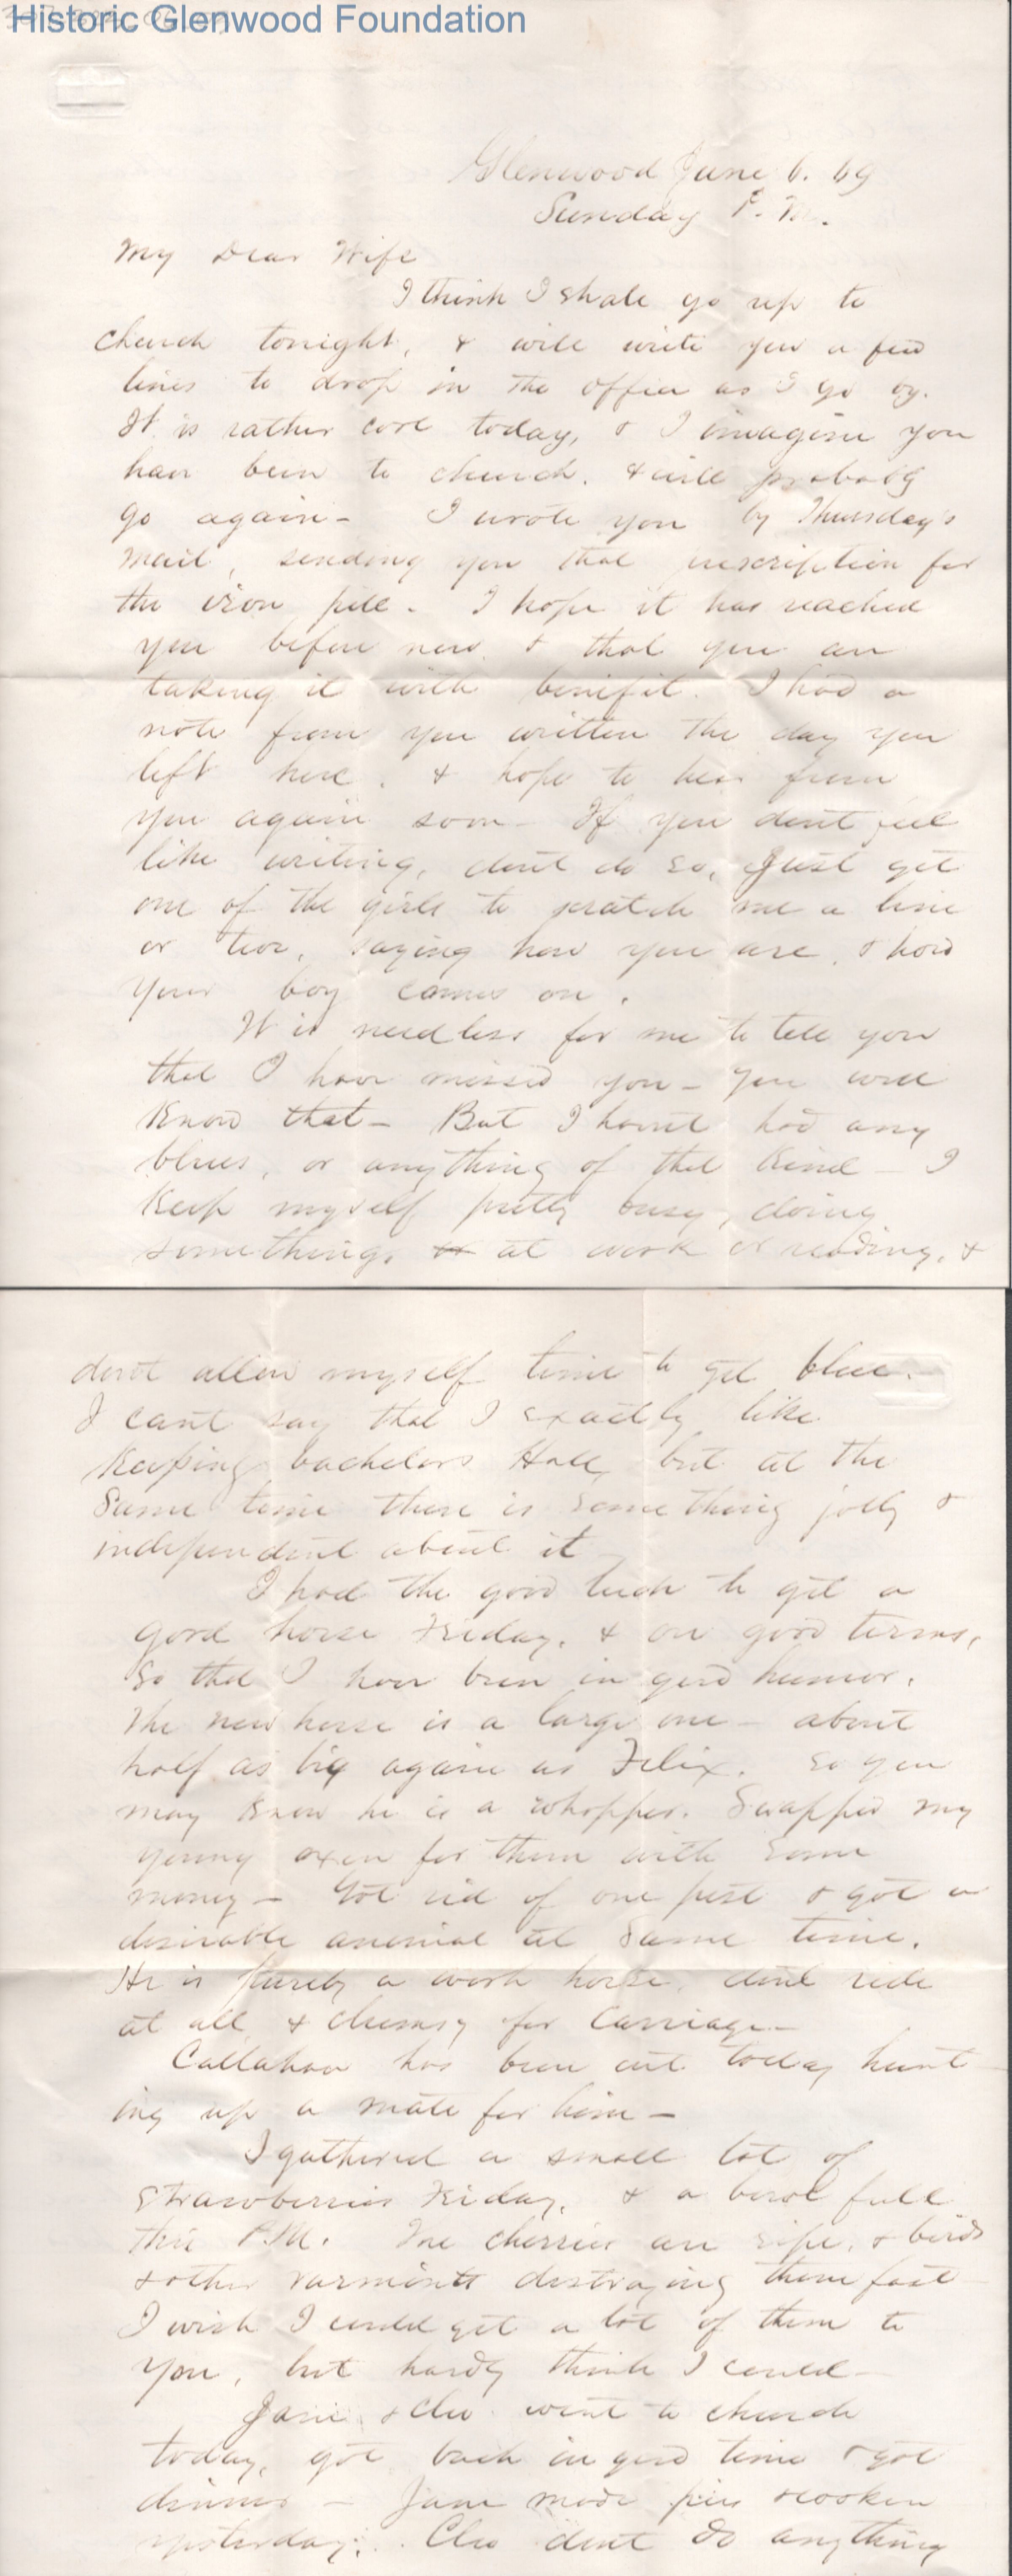 Historic Glenwood Foundation
Glenwood June 6. 69
Sunday P. M.
My Dear Wife
I think I shall go up to
church tonight, & will write you a few
lines to drop in the office as I go by.
It is rather cool today, & I imagine you
have been to church. & will probably
go again - I wrote you by Thursday's
mail, sending you that prescription for
the iron pill. I hope it has reached
you before now, & that you are
taking it with benifit. I had a
note from you written the day you
left here. & hope to hear from
you again soon - If you dont feel
like writing, dont do so, Just get
one of the girls to scratch me a line
or two, saying how you are, & how
your boy comes on.
It is needless for me to tell you
that I have missed you - you will
know that - But I havnt had any
blues, or anything of that kind - I
keep myself pretty busy, doing
something, at work or reading, &
dont allow myself time to get blue.
I cant say that I exactly like
keeping bachelors Hall, but at the
same time there is something jolly &
independent about it
I had the good luck to get a
good horse Friday, & on good terms,
so that I have been in good humor.
The new horse is a large one - about
half as big again as Felix. so you
may know he is a whopper. Swapped my
young oxen for them with some
money - Got rid of one pest & got a
desirable animal at same time.
He is purely a work horse, dont ride
at all & clumsy for carriage -
Callahan has been out today hunt
ing up a mate for him -
I gathered a small lot of
strawberries Friday, & a bowl full
this P.M. The cherries are ripe, & birds
& other varmints destroying them fast -
I wish I could get a lot of them to
you, but hardly think I could -
Jane & Cleo went to church
today, got back in good time & got
dinner - Jane made pies
yesterday. Cleo dont do anything